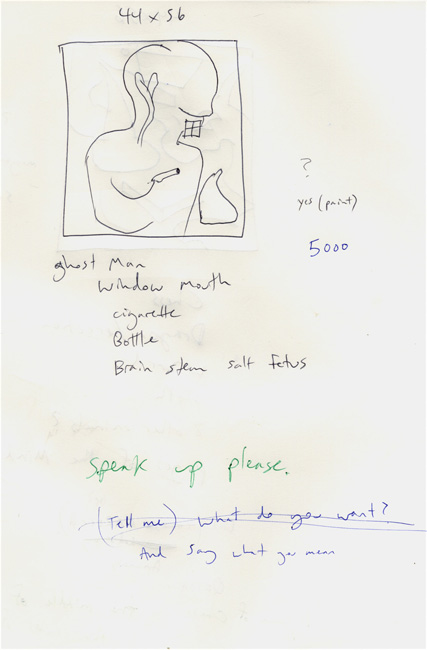 44 x 56
?
yes (paint)
5000
ghost Man
Window mouth
cigarette
Bottle
Brain stem salt fetus
Speak up please.
(Tell me) What do you want?
And say what you mean